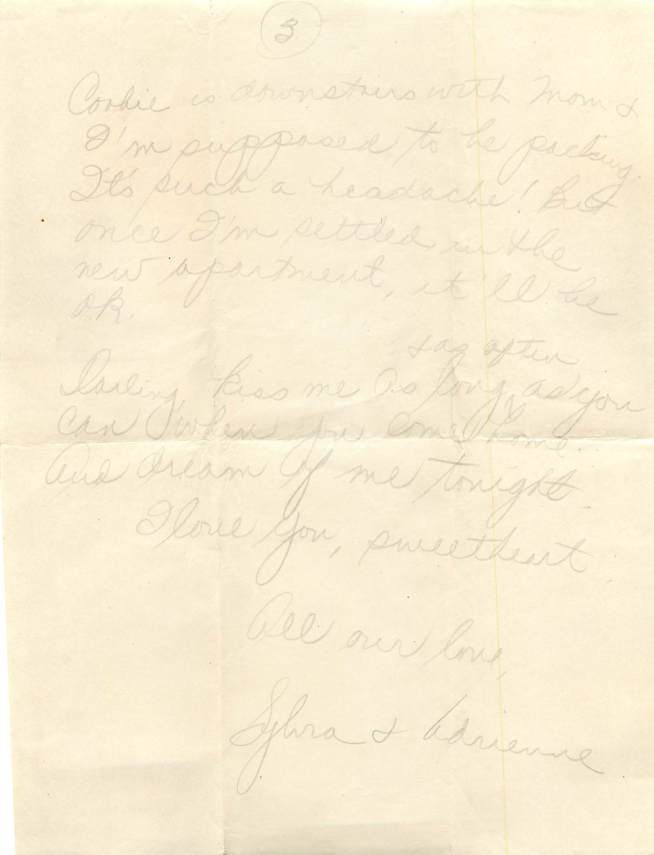 3
Cookie is downstairs with Mom &
I'm supposed to be packing.
It's such a headache! But
once I'm settled in the
new apartment, it'll be
o.k.
& as often
Darling, kiss me as long ^ as you
can when you come home.
And dream of me tonight.
I love you, sweetheart
All our love,
Sylvia & Adrienne